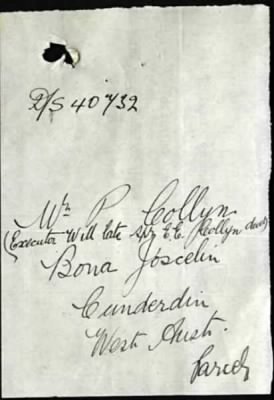 2/S 40732
Mr P Collyn
(Executor Will late E.C. Collyn decd)
Bona Joscelin
Cunderdin
West Aust.